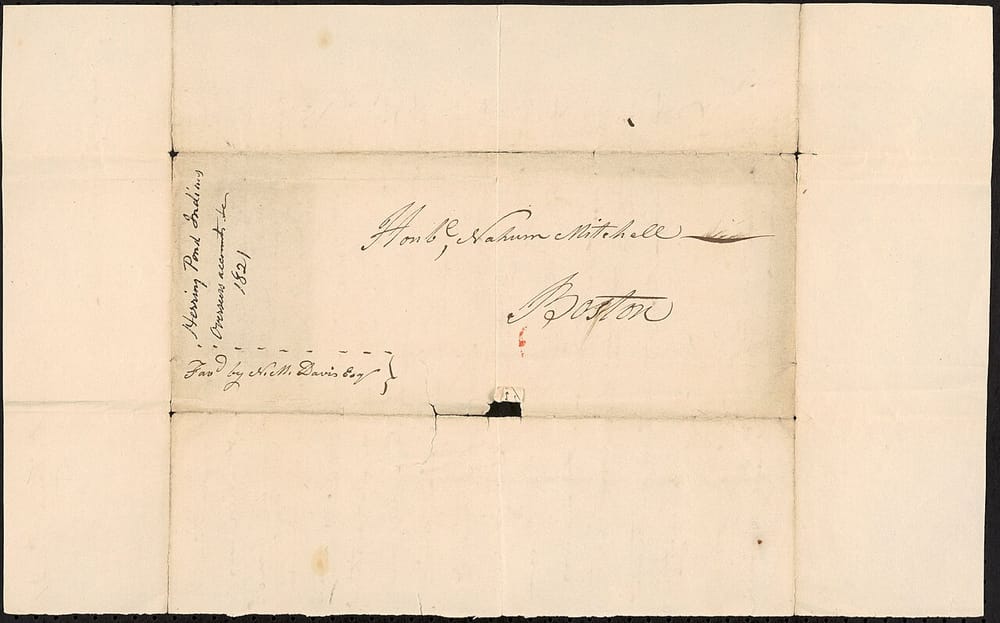 Honble, Nahum Mitchell
Boston
Favd by N. M. Davis Esq
Herring Pond Indians
Overseers accounts &c
1821